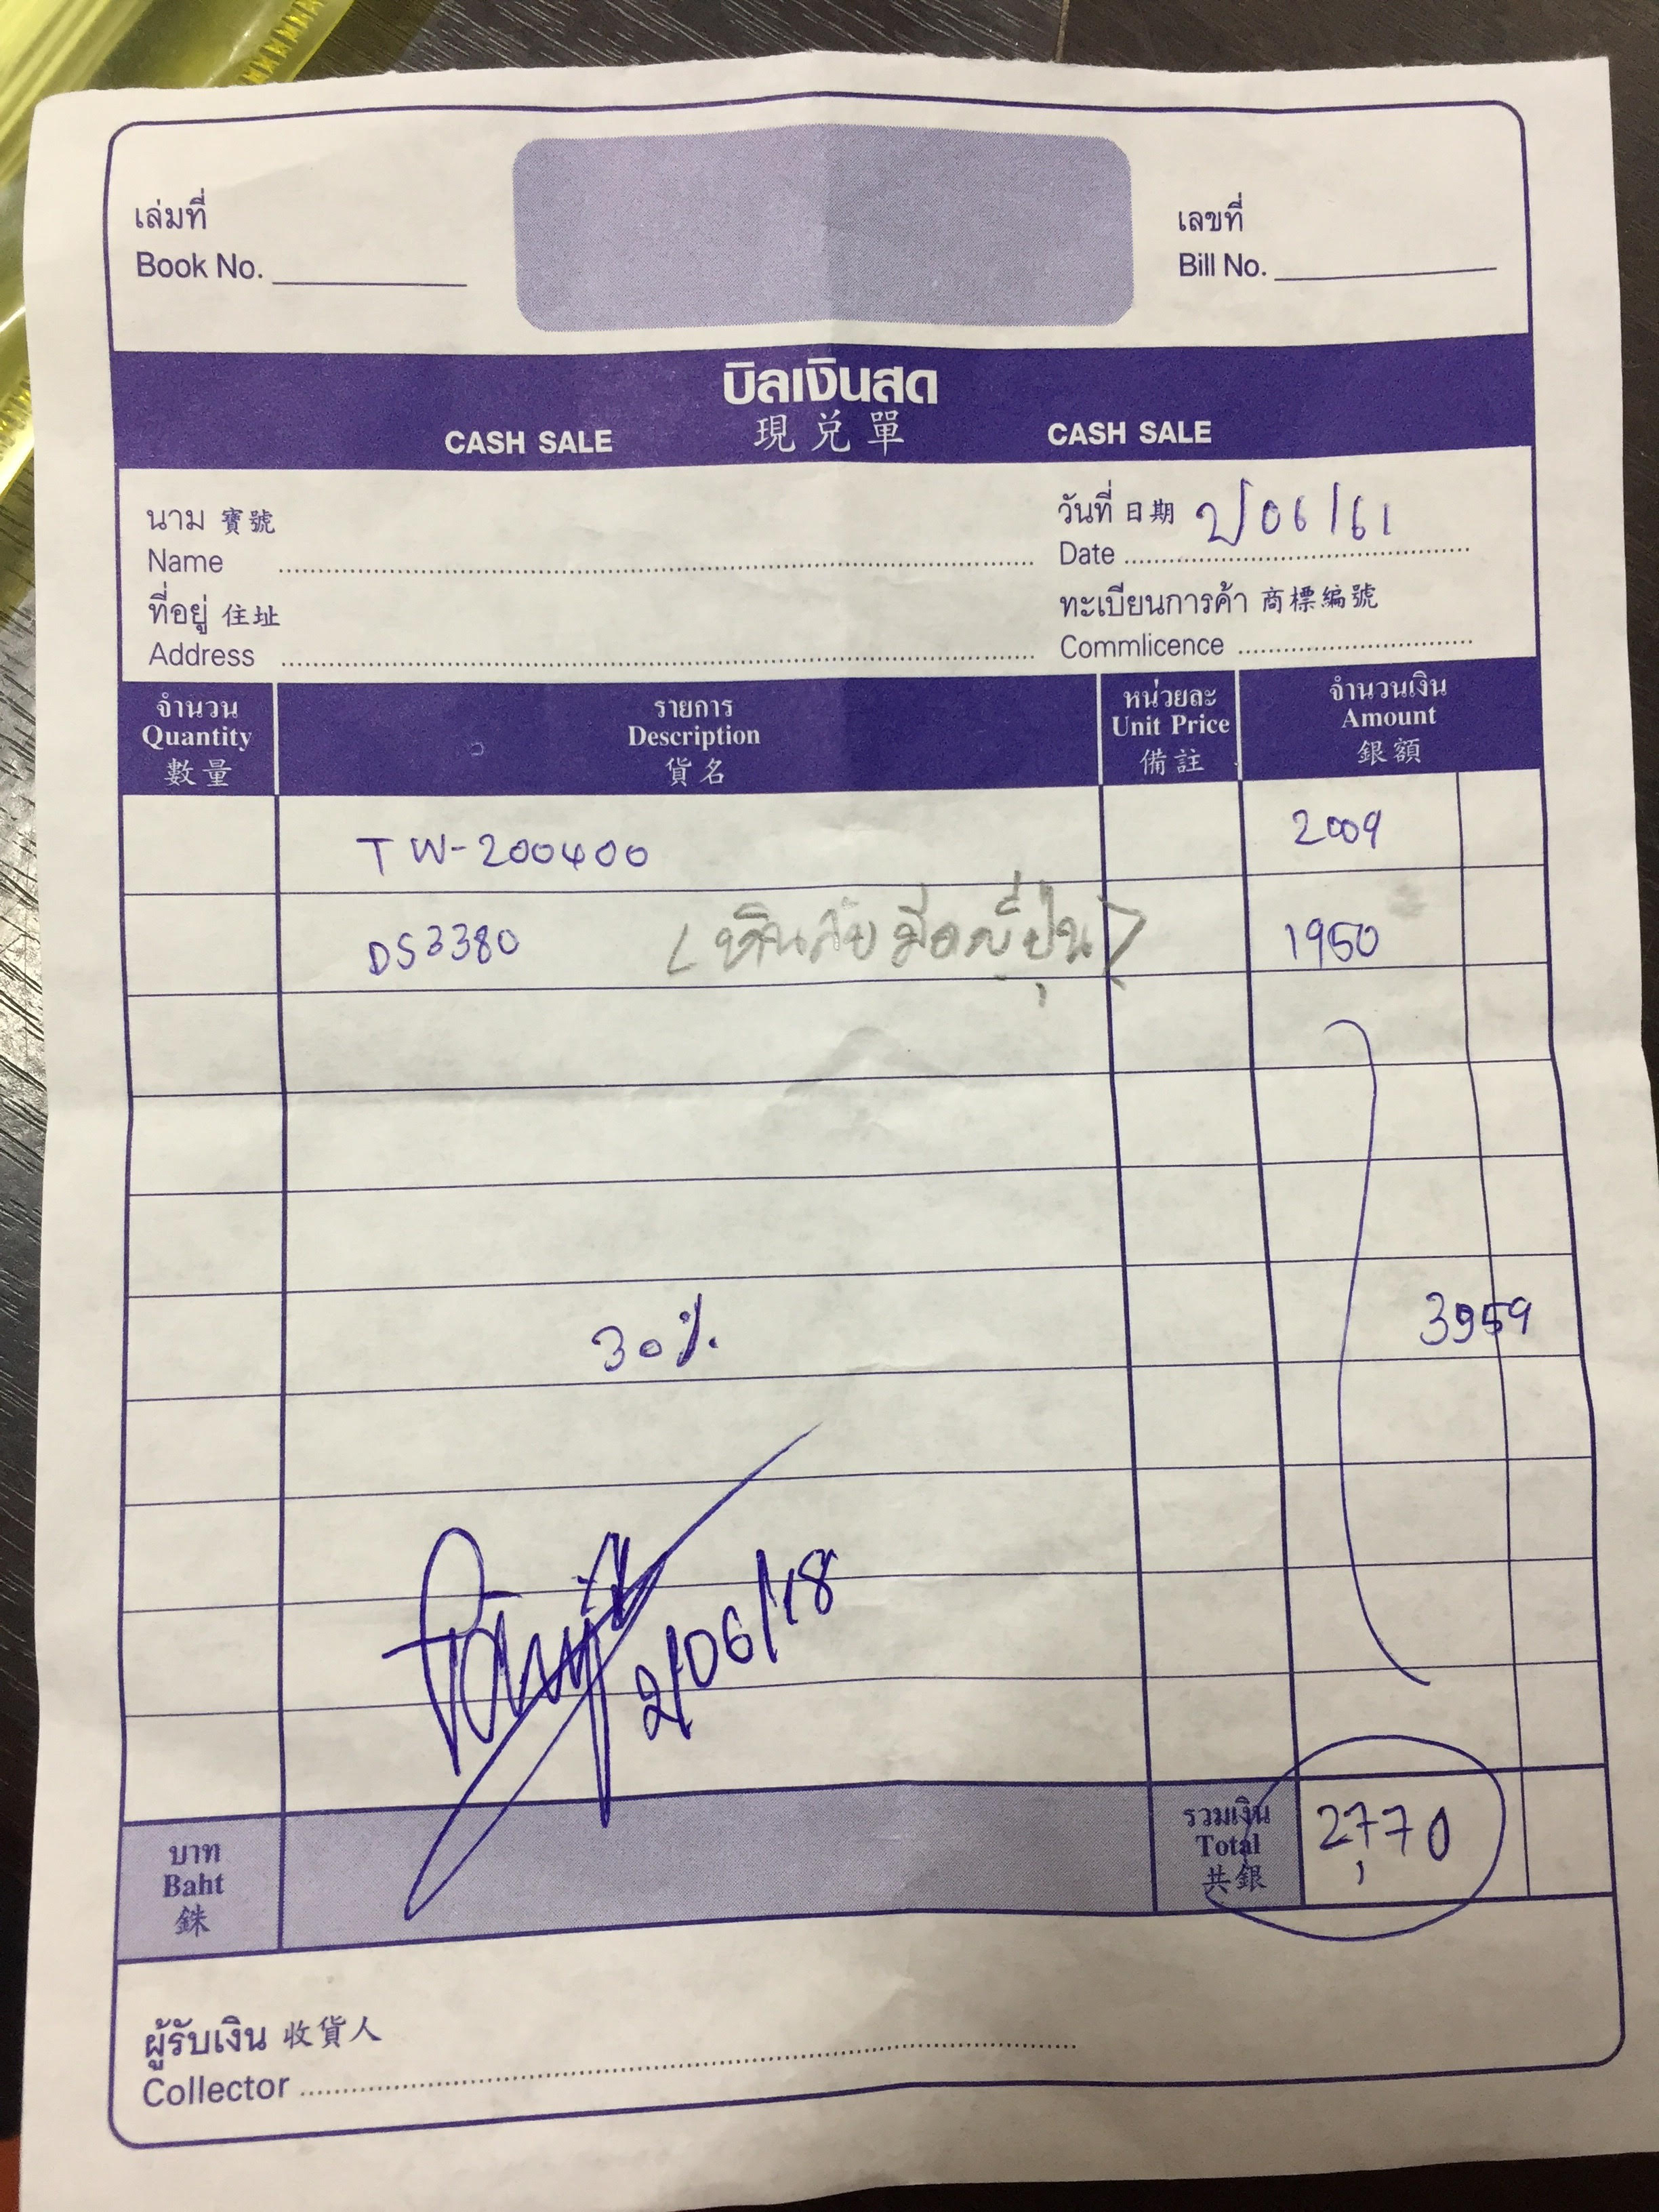 เล่มที่
Book No.
เลขที่
Bill No.
บิลเงินสด
CASH SALE 現兌單 CASH SALE
นาม 寶號
Name
วันที่ 日期 2/06/61
Date
ที่อยู่ 住址
Address
ทะเบียนการค้า 商標編號
Commlicence
จำนวน
Quantity
數量
รายการ
Description
貨名
หน่วยละ
Unit Price
備註
จำนวนเงิน
Amount
銀額
TW-200400 2009
DS3380 (หินลับมีดญี่ปุ่น) 1950
30% 3959
2/06/18
บาท
Baht
銖
รวมเงิน
Total
共銀
2,770
ผู้รับเงิน 收貨人
Collector